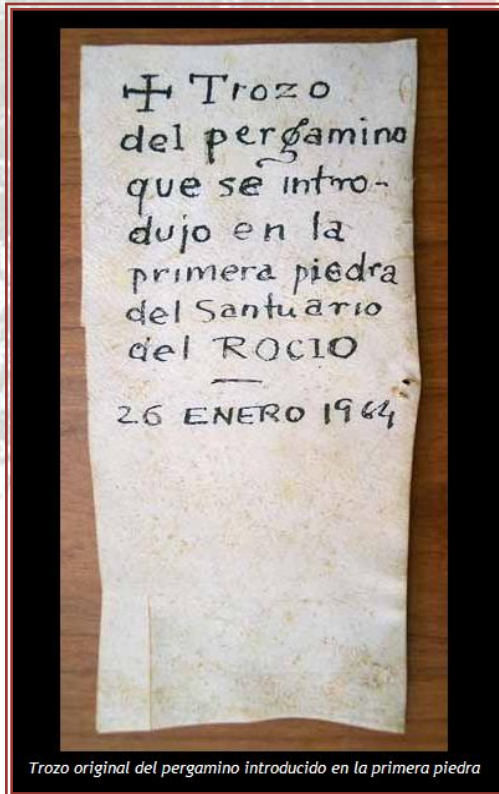 ✠ Trozo
del pergamino
que se intro-
dujo en la
primera piedra
del Santuario
del ROCIO
—
26 ENERO 1964
Trozo original del pergamino introducido en la primera piedra